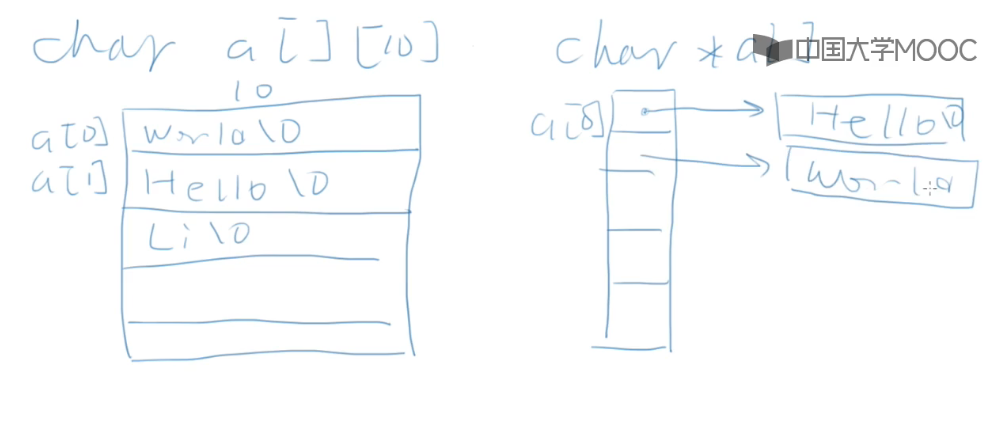 char a[][10]
10
a[0] World\0
a[1] Hello\0
Li\0
char *a[]
中国大学MOOC
a[0] Hello\0
World